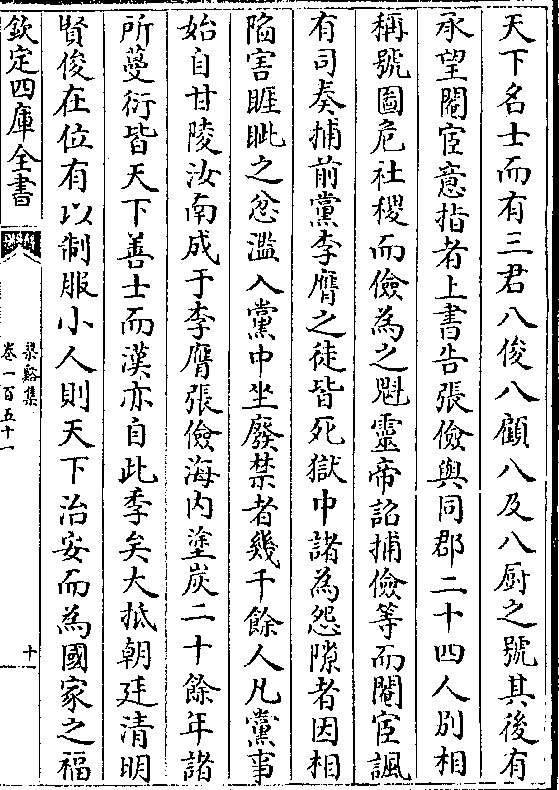 天下名士而有三君八俊八顧八及八厨之號其後有
承望閹宦意指者上書告張儉與同郡二十四人別相
稱號圖危社稷而儉為之魁靈帝詔捕儉等而閹宦諷
有司奏捕前黨李膺之徒皆死獄中諸為怨隙者因相
陷害睚眦之忿濫入黨中坐廢禁者幾千餘人凡黨事
始自甘陵汝南成于李膺張儉海内塗炭二十餘年諸
所蔓衍皆天下善士而漢亦自此季矣大抵朝廷清明
賢俊在位有以制服小人則天下治安而為國家之福
欽定四庫全書
梁谿集
卷一百五十一
十一